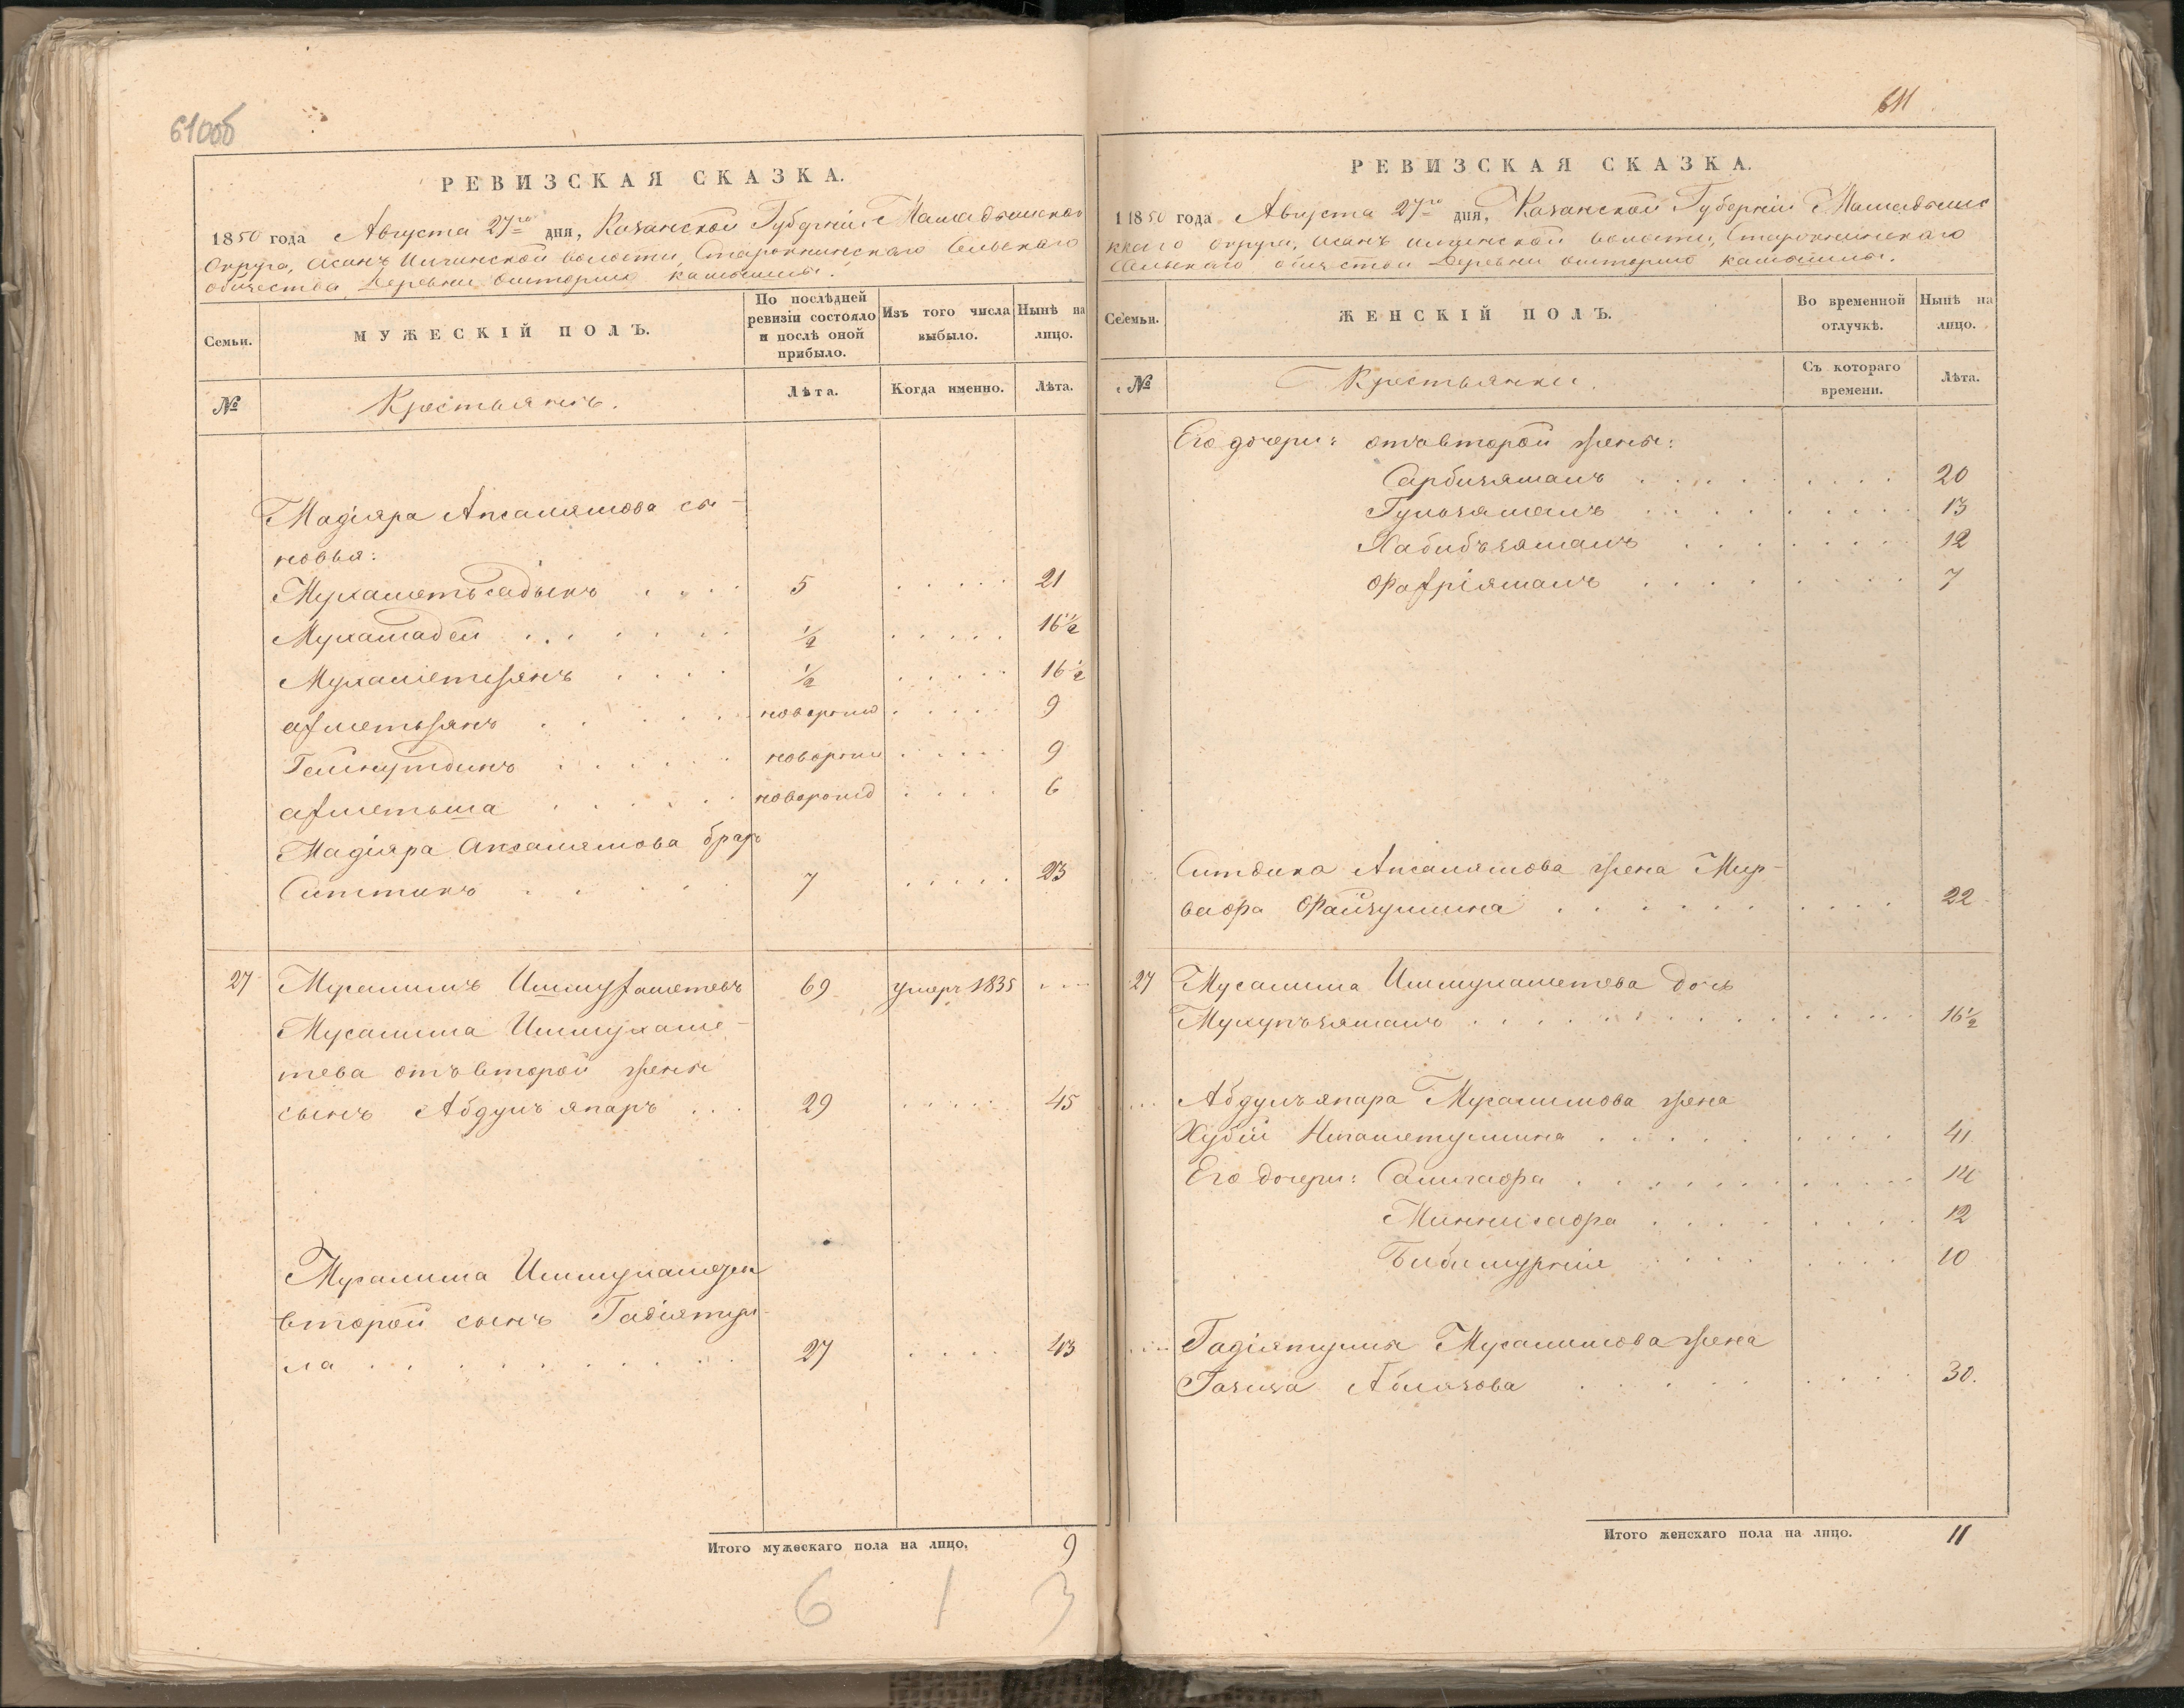 610об
РЕВИЗСКАЯ СКАЗКА.
1850 года Августа 27го дня, Казанской Губерніи Мамадышскаго
Округа, Асанъ Илчинской волости, Сельскаго
общества Деревни
Семьи.
МУЖЕСКІЙ ПОЛЪ.
По послѣдней ревизіи состояло и послѣ оной прибыло.
Изъ того числа выбыло.
Нынѣ на лицо.
№
Крестьянъ.
Лѣта.
Когда именно.
Лѣта.
Мадіяра Апсалямова сы-
новья:
Мухаметьсадыкъ 5 21
Мухамадей 1/2 16 1/2
Мухаметзянъ 1/2 16 1/2
Ахметьзянъ новорожд 9
Гайнутдинъ новорож 9
Ахметьша новорожд 6
Мадіяра Апсалямова братъ
Ситтикъ 7 23
27 Мусалимъ Ишмухаметевъ 69 умеръ 1835
Мусалима Ишмухаме-
тева отъ второй жены
сынъ Абдулъяпаръ 29 45
Мусалима Ишмухаметева
второй сынъ Гадіятул-
ла 27 43
Итого мужескаго пола на лицо. 9
6 1 3
611
РЕВИЗСКАЯ СКАЗКА.
1850 года Августа 27го дня, Казанской Губерніи Мамадышс
каго округа, Асанъ Илчинской волости,
Сельскаго общества Деревни
Семьи.
ЖЕНСКІЙ ПОЛЪ.
Во временной отлучкѣ.
Нынѣ на лицо.
№
Крестьянки.
Съ котораго времени.
Лѣта.
Его дочери: отъ второй жены:
Сарбизямалъ 20
Гульзямалъ 13
Хабибъзямалъ 12
Фахріямалъ 7
Ситдика Апсалямова жена Мир-
вафа Файзуллина 22
27 Мусалима Ишмухаметева дочь
16 1/2
Абдулъяпара Мусалимова жена
Хубій Нигаметуллина 41
Его дочери: 14
12
10
Гадіятуллы Мусалимова жена
Газиза Аблязова 30.
Итого женскаго пола на лицо. 11